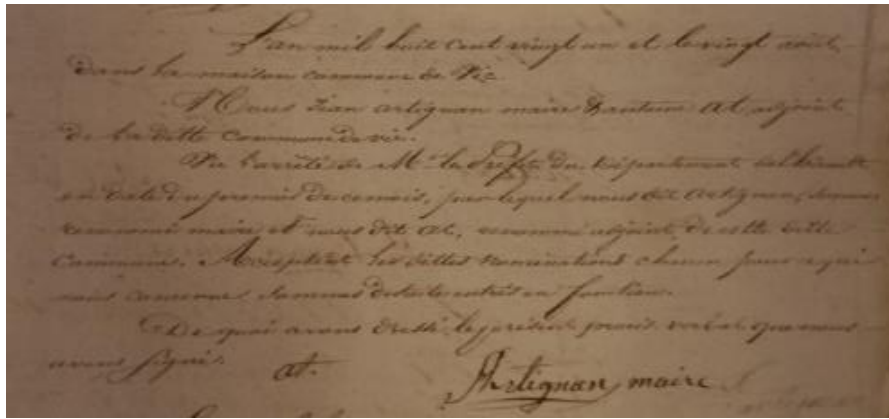 L'an mil huit cent vingt un et le vingt août
dans la maison commune de Vic
Nous Jean Artignan maire Antoine At adjoint
de la ditte Commune de vic.
Vu l'arrêté de Mr le Préfet du Département de l'hérault
en date du premier de ce mois, par lequel nous dit Artignan, sommes
renommé maire et nous dit At, renommé adjoint de cette ditte
Commune. Acceptent les dittes nominations chacun pour ce qui
nous concerne sommes de suite entrés en fonction.
De quoi avons dressé le présent procès verbal que nous
avons signé. At. Artignan maire